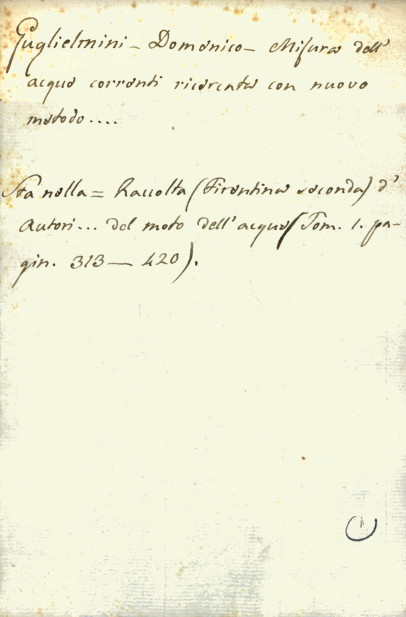 Guglielmini - Domenico - Misura dell'
acque correnti ricercata con nuovo
metodo....
Sta nella = Raccolta (Fiorentina seconda) d'
Autori... del moto dell'acque (Tom. 1. pa-
gin. 313 — 420).
1